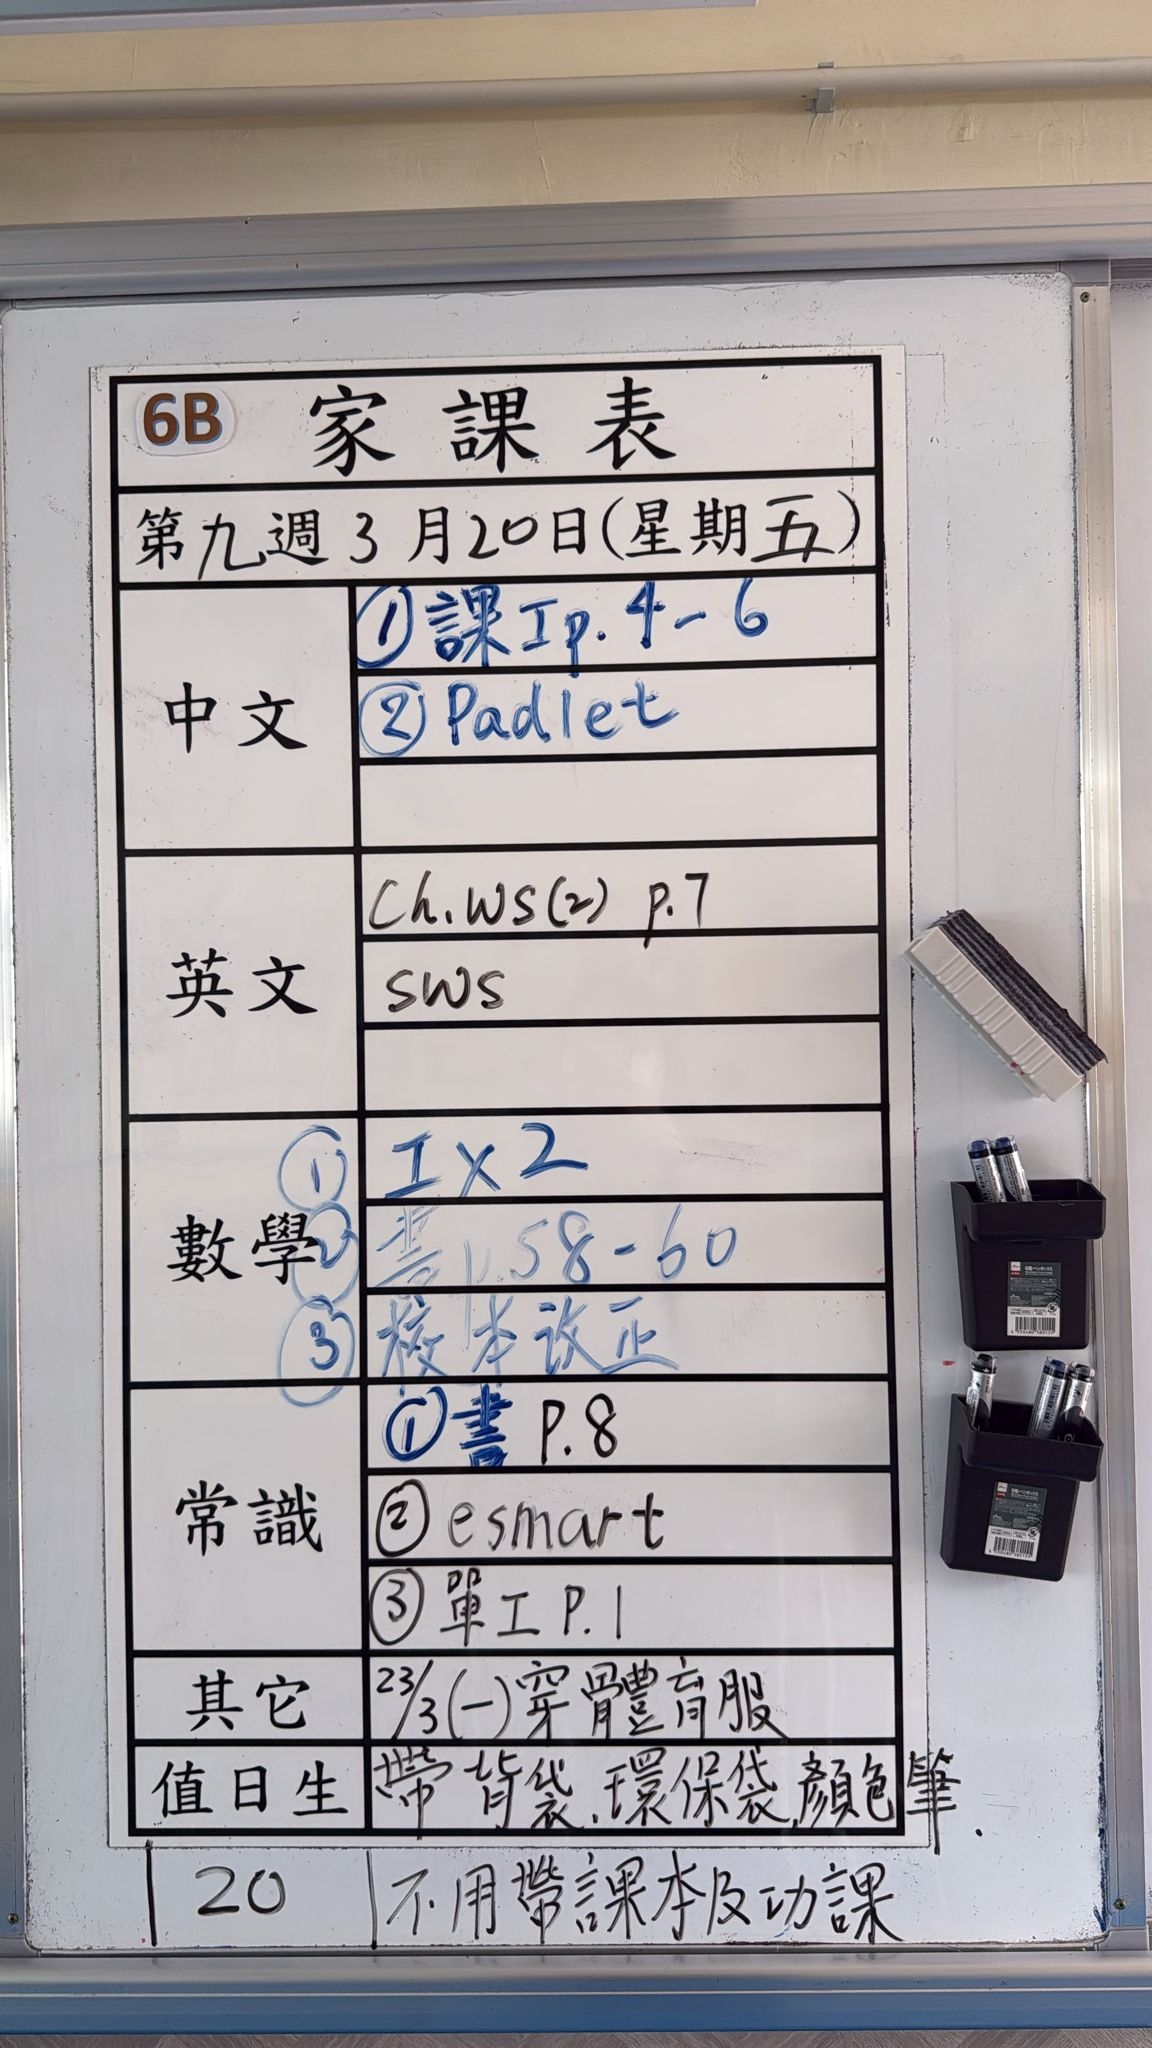 6B 家課表
第九週 3月20日(星期五)
中文
① 課工p.4-6
② Padlet
英文
Ch.WS(2) p.7
SWS
數學
① 工×2
② 書p.58-60
③ 校本改正
常識
① 書 P.8
② esmart
③ 單工 P.1
其它 23/3(一)穿體育服
值日生 帶背袋,環保袋,顏色筆.
20 不用帶課本及功課